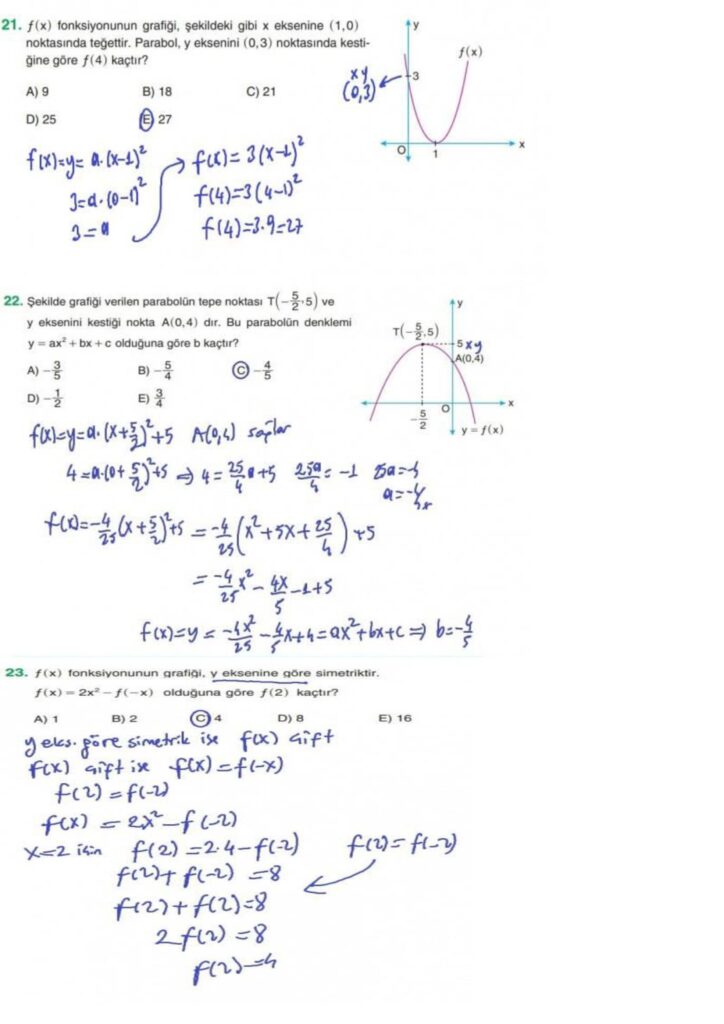 21. f(x) fonksiyonunun grafiği, şekildeki gibi x eksenine (1,0)
noktasında teğettir. Parabol, y eksenini (0,3) noktasında kesti-
ğine göre f(4) kaçtır?
A) 9 B) 18 C) 21
D) 25 E) 27
y
f(x)
3
xy
(0,3)
O
1
x
f(x)=y= a.(x-1)²
3=a.(0-1)²
3=a
f(x)= 3(x-1)²
f(4)=3(4-1)²
f(4)=3.9=27
22. Şekilde grafiği verilen parabolün tepe noktası T(-5/2,5) ve
y eksenini kestiği nokta A(0,4) dır. Bu parabolün denklemi
y = ax² + bx + c olduğuna göre b kaçtır?
A) -3/5 B) -5/4 C) -4/5
D) -1/2 E) 3/4
y
T(-5/2,5)
5 xy
A(0,4)
O
x
-5/2
y = f(x)
f(x)=y=a.(x+5/2)²+5 A(0,4) sağlar
4=a.(0+5/2)²+5 ⇒ 4=25/4 a+5 25a/4=-1 25a=-4
f(x)=-4/25(x+5/2)²+5 = -4/25(x²+5x+25/4)+5
= -4/25x² - 4x/5 -1+5
f(x)=y = -4x²/25 - 4/5x+4=ax²+bx+c ⇒ b=-4/5
23. f(x) fonksiyonunun grafiği, y eksenine göre simetriktir.
f(x) = 2x² – f(–x) olduğuna göre f(2) kaçtır?
A) 1 B) 2 C) 4 D) 8 E) 16
y eks. göre simetrik ise f(x) çift
f(x) çift ise f(x)=f(-x)
f(2)=f(-2)
f(x) = 2x²-f(-2)
x=2 için f(2)=2.4-f(-2) f(2)=f(-2)
f(2)+f(-2)=8
f(2)+f(2)=8
2f(2)=8
f(2)=4